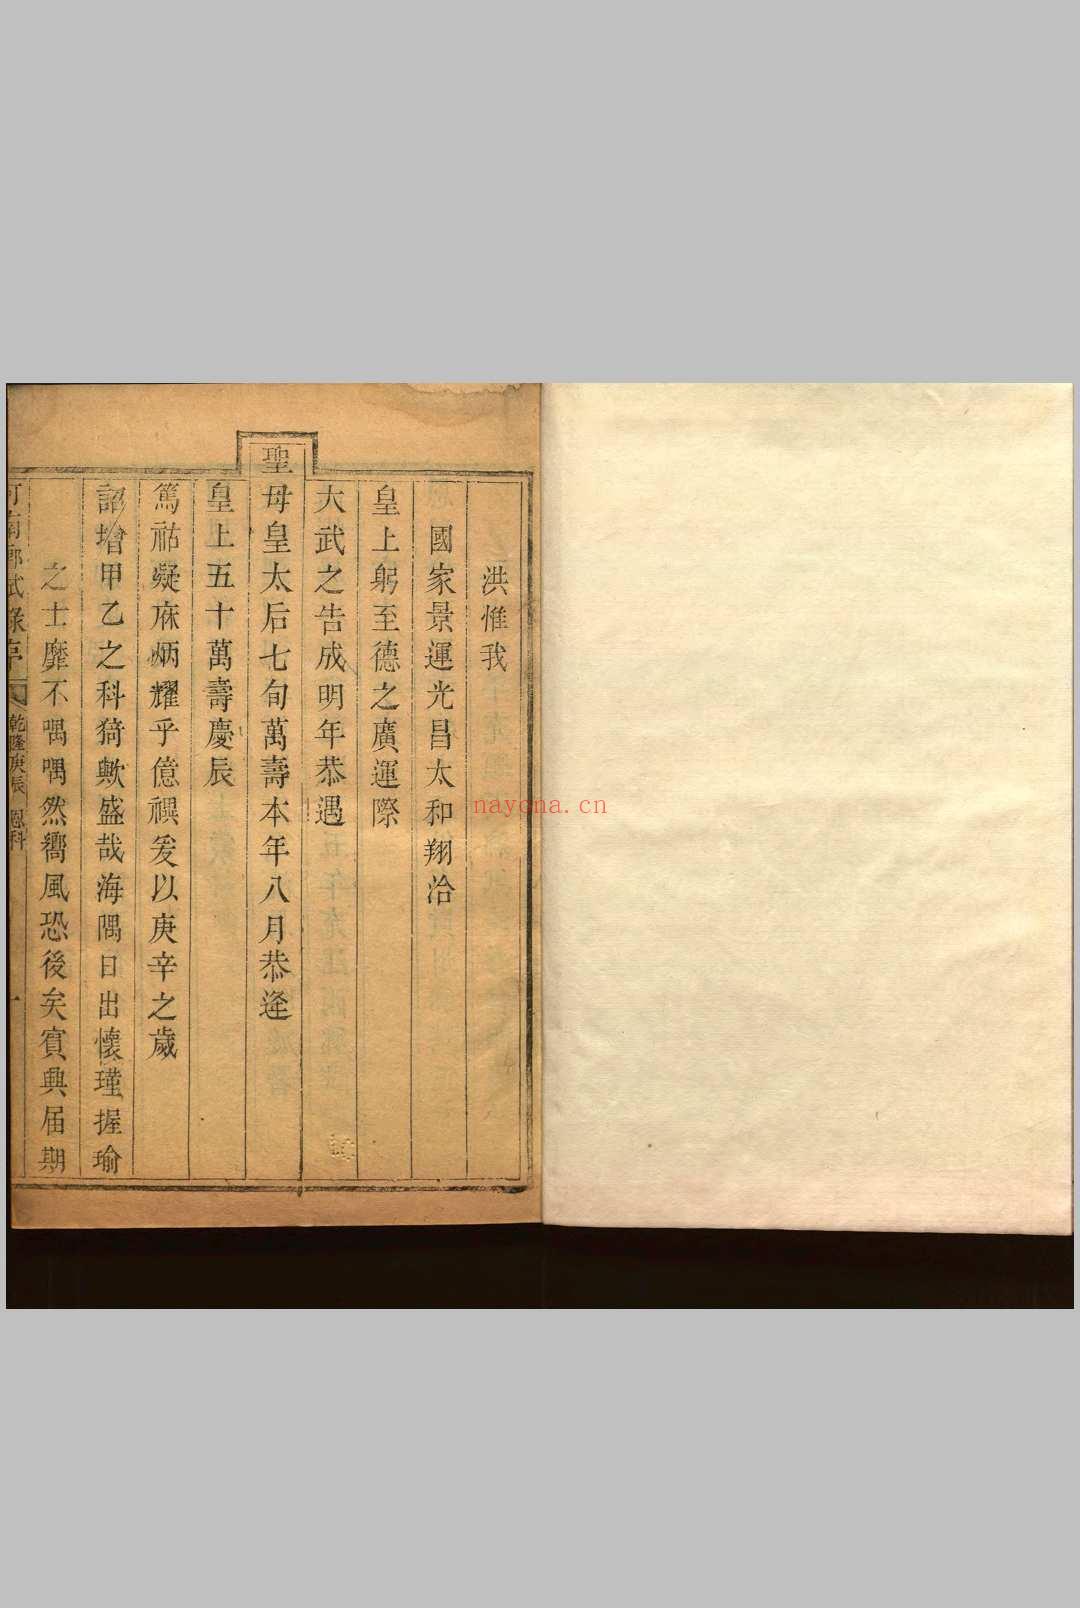 洪惟我
國家景運光昌太和翔洽
皇上躬至德之廣運際
大武之告成明年恭遇
聖母皇太后七旬萬壽本年八月恭逢
皇上五十萬壽慶辰
篤祜凝庥炳耀乎億禩爰以庚辛之歲
詔增甲乙之科猗歟盛哉海隅日出懷瑾握瑜
之士靡不喁喁然嚮風恐後矣賓興届期
河南鄉試錄序 乾隆庚辰 恩科
naycna.cn